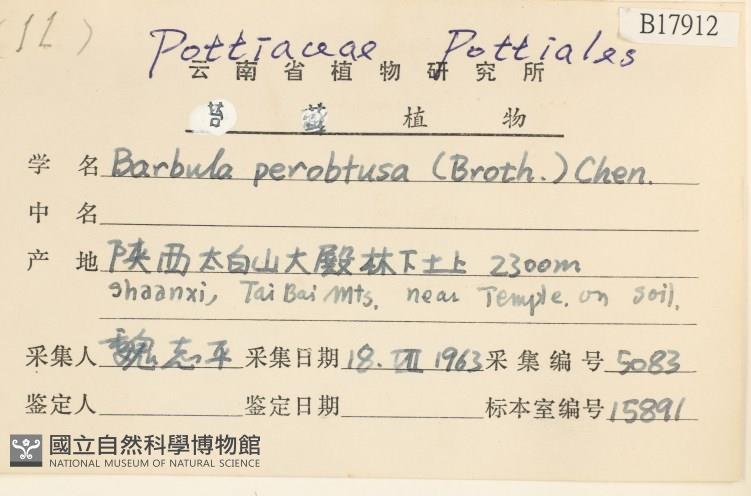 (11)
B17912
Pottiaceae Pottiales
云南省植物研究所
苔藓植物
学名 Barbula perobtusa (Broth.) Chen.
中名
产地 陕西太白山大殿林下土上 2300m
Shaanxi, Tai Bai Mts. near Temple. on soil.
采集人 魏志平 采集日期 18. VII 1963 采集编号 5083
鉴定人 鉴定日期 标本室编号 15891
國立自然科學博物館
NATIONAL MUSEUM OF NATURAL SCIENCE